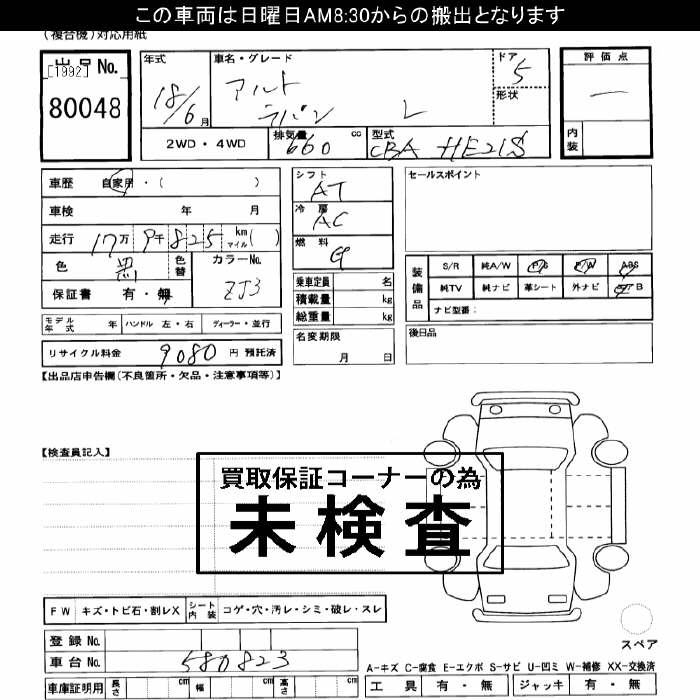 この車両は日曜日AM8:30からの搬出となります
(複合機)対応用紙
出品No.
[1992]
80048
年式
18/6月
車名・グレード
アルト
ラパン L
ドア
5
形状
評価点
内装
2WD・4WD
排気量
660 cc
型式
CBA HE21S
車歴 自家用・( )
車検 年 月
走行 17万9千825 km マイル( )
色 黒 色替
カラーNo.
ZJ3
保証書 有・無
シフト
AT
冷房
AC
燃料
G
乗車定員 名
積載量 kg
総重量 kg
セールスポイント
装備品
S/R 純A/W P/S P/W ABS
純TV 純ナビ 革シート 外ナビ エアB
ナビ型番:
モデル年式 年 ハンドル 左・右 ディーラー・並行
リサイクル料金 9080 円 預託済
名変期限
月 日
後日品
【出品店申告欄(不良箇所・欠品・注意事項等)】
【検査員記入】
買取保証コーナーの為
未検査
FW キズ・トビ石・割レX シート内装 コゲ・穴・汚レ・シミ・破レ・スレ
登録No.
車台No. 580823
車庫証明用 長さ cm 幅 cm 高さ cm
スペア
A-キズ C-腐食 E-エクボ S-サビ U-凹ミ W-補修 XX-交換済
工具 有・無 ジャッキ 有・無